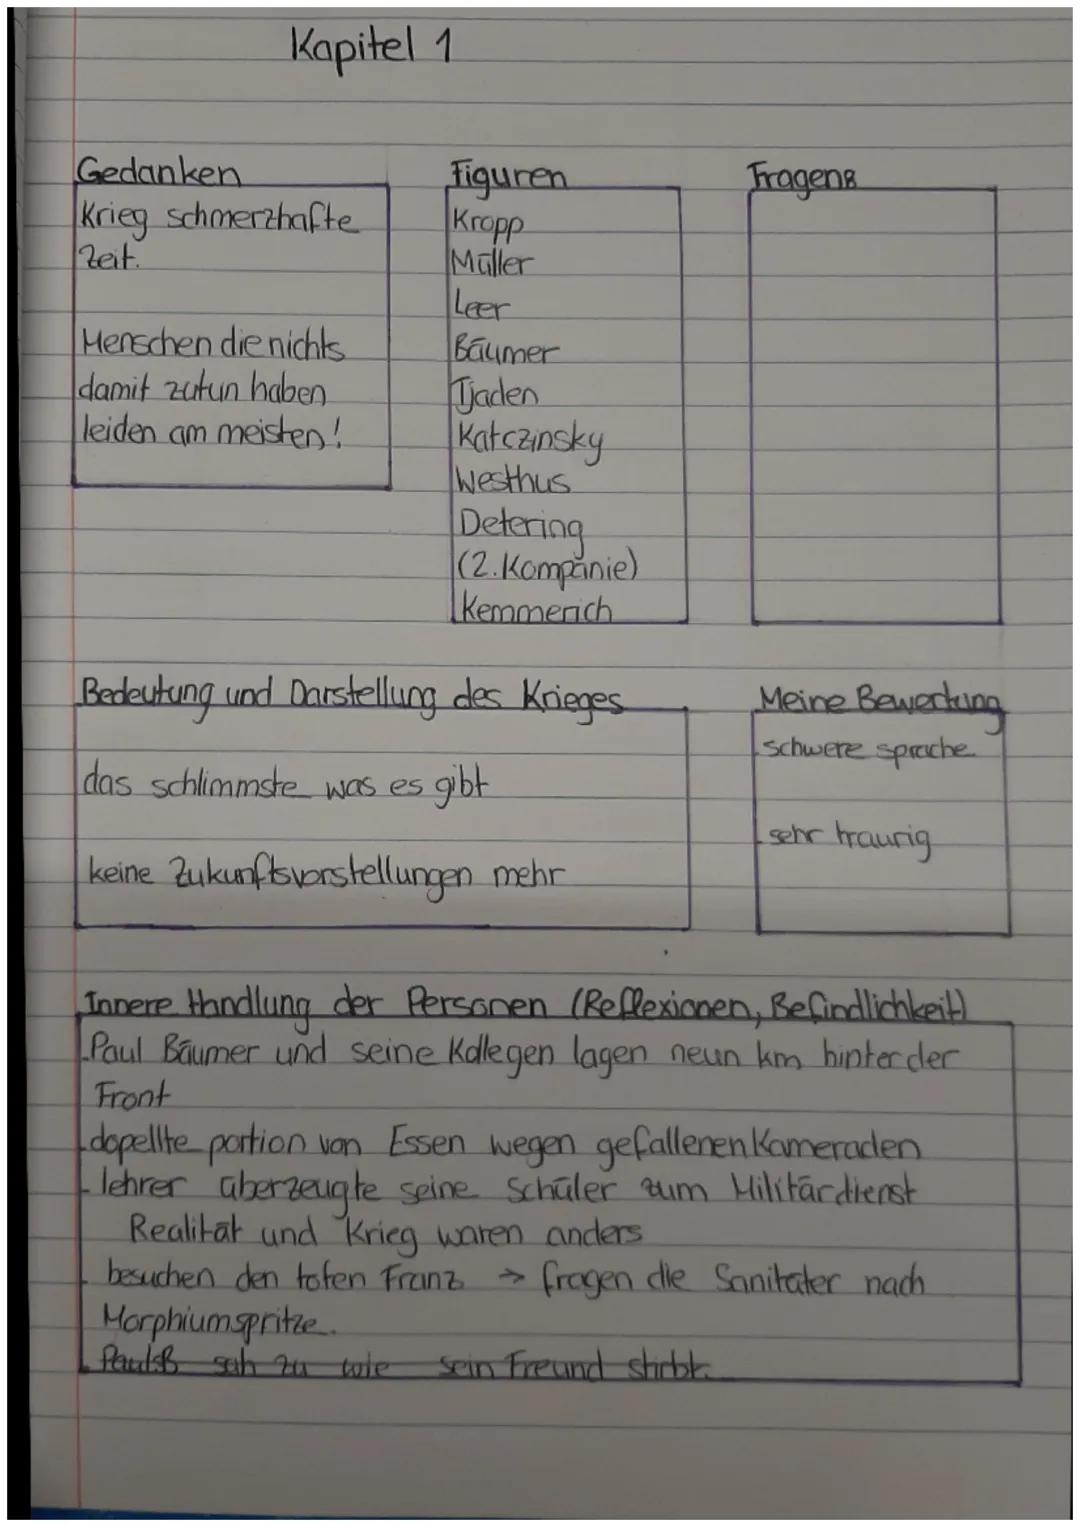 Kapitel 1
Gedanken
Krieg schmerzhafte
Zeit.
Menschen die nichts
damit zutun haben
leiden am meisten!
Figuren
Kropp
Müller
Leer
Bäumer
Tjaden
Katczinsky
Westhus
Detering
(2. Kompänie)
Kemmerich
Fragen:
Bedeutung und Darstellung des Krieges
das schlimmste was es gibt
keine Zukunftsvorstellungen mehr
Meine Bewertung
schwere sprache
sehr traurig
Innere Handlung der Personen (Reflexionen, Befindlichkeit)
Paul Bäumer und seine Kollegen lagen neun km hinter der
Front
dopellte portion von Essen wegen gefallenen Kameraden
lehrer überzeugte seine Schüler zum Militärdienst
Realität und Krieg waren anders
besuchen den toten Franz → fragen die Sanitäter nach
Morphiumspritze.
sah zu wie sein Freund stirbt.